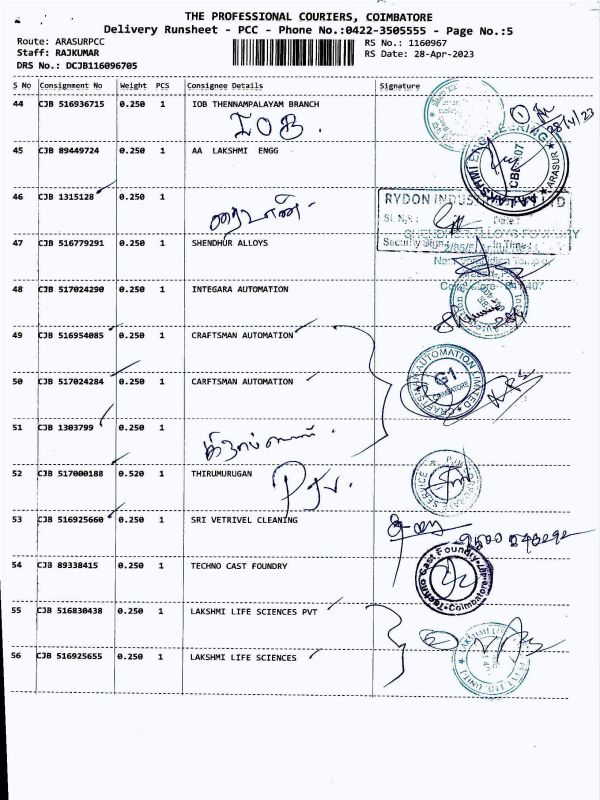 THE PROFESSIONAL COURIERS, COIMBATORE
Delivery Runsheet - PCC - Phone No.:0422-3505555 - Page No.:5
Route: ARASURPCC
RS No.: 1160967
Staff: RAJKUMAR
RS Date: 28-Apr-2023
DRS No.: DCJB116096705
S No Consignment No Weight PCS Consignee Details Signature
44 CJB 516936715 0.250 1 IOB THENNAMPALAYAM BRANCH
IOB.
28/4/23
45 CJB 89449724 0.250 1 AA LAKSHMI ENGG
AA LAKSHMI ENGINEERING ARASUR
CBE-07
46 CJB 1315128 0.250 1
RYDON INDUS LTD
Sl. No.: Date:
Security Sign In Time:
47 CJB 516779291 0.250 1 SHENDHUR ALLOYS
SHENDHUR ALLOYS FOUNDRY
48 CJB 517024290 0.250 1 INTEGARA AUTOMATION
49 CJB 516954085 0.250 1 CRAFTSMAN AUTOMATION
50 CJB 517024284 0.250 1 CARFTSMAN AUTOMATION
CRAFTSMAN AUTOMATION LIMITED
G1
COIMBATORE
51 CJB 1303799 0.250 1
52 CJB 517000188 0.520 1 THIRUMURUGAN
PJV.
53 CJB 516925660 0.250 1 SRI VETRIVEL CLEANING
54 CJB 89338415 0.250 1 TECHNO CAST FOUNDRY
Techno Cast Foundry Coimbatore
55 CJB 516830438 0.250 1 LAKSHMI LIFE SCIENCES PVT
56 CJB 516925655 0.250 1 LAKSHMI LIFE SCIENCES